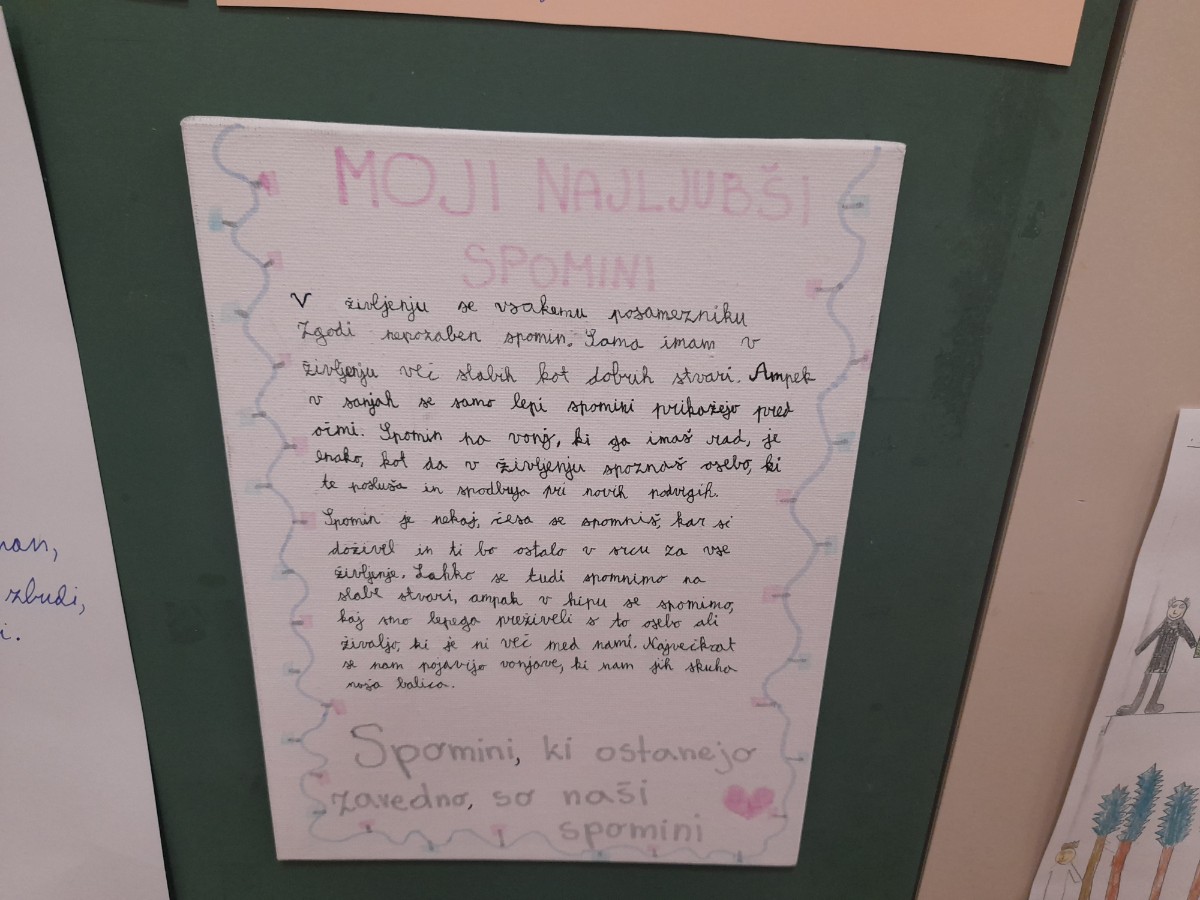 MOJI NAJLJUBŠI
SPOMINI
V življenju se vsakemu posamezniku
Zgodi nepozaben spomin. Sama imam v
življenju več slabih kot dobrih stvari. Ampek
v sanjah se samo lepi spomini prikažejo pred
očmi. Spomin na vonj, ki ga imaš rad, je
enako, kot da v življenju spoznaš osebo, ki
te posluša in spodbuja pri novih podvigih.
Spomin je nekaj, česa se spomniš, kar si
doživel in ti bo ostalo v srcu za vse
življenje. Lahko se tudi spomnimo na
slabe stvari, ampak v hipu se spomimo,
kaj smo lepega preživeli s to osebo ali
živaljo, ki je ni več med nami. Največkrat
se nam pojavijo vonjave, ki nam jih skuha
naša babica.
Spomini, ki ostanejo
zavedno, so naši
spomini
zbudi,